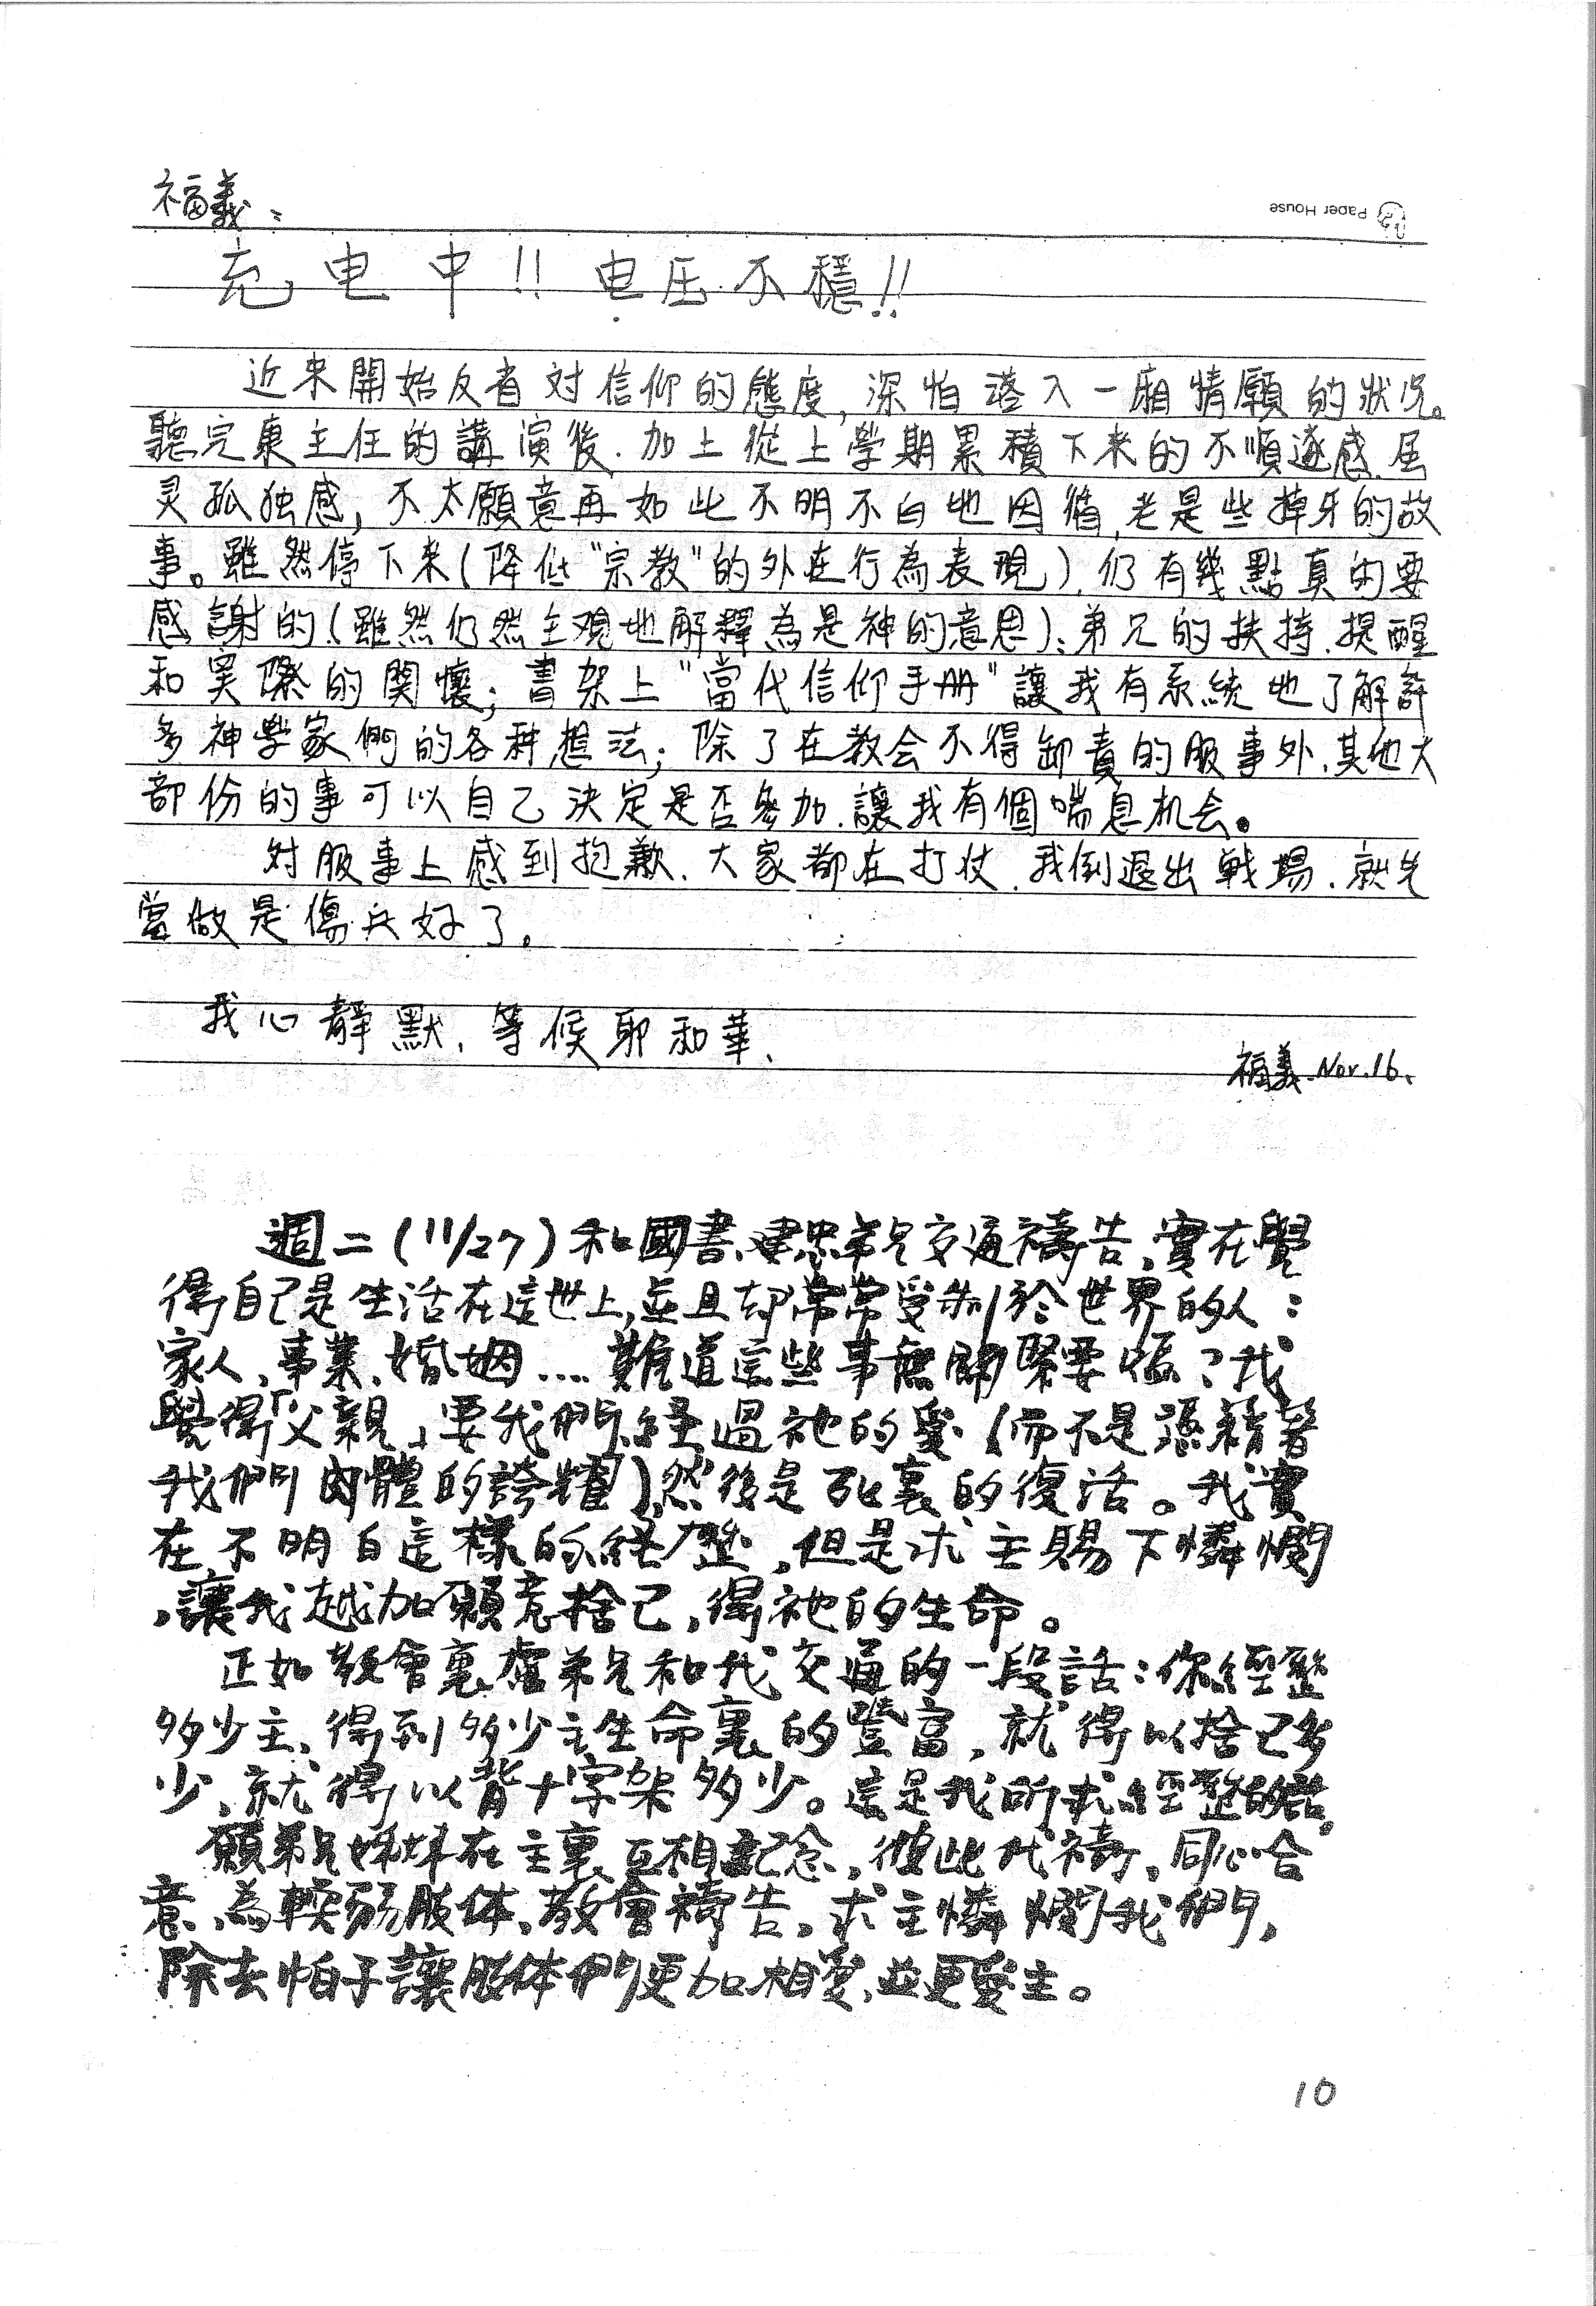 Paper House
福義：
充电中!! 电压不穩!!
近来開始反省対信仰的態度,深怕落入一廂情願的狀况。
聽完康主任的講演後.加上從上學期累積下来的不順遂感.屬
灵孤独感,不太願意再如此不明不白地因循,老是些掉牙的故
事。雖然停下来(降低"宗教"的外在行為表現),仍有幾點真的要
感謝的(雖然仍然主观地解釋為是神的意思):弟兄的扶持.提醒
和実際的関懷;書架上"當代信仰手册"讓我有系統地了解許
多神學家們的各种想法;除了在教会不得卸責的服事外,其他大
部份的事可以自己決定是否參加.讓我有個喘息机会。
対服事上感到抱歉.大家都在打仗.我倒退出戦場.就先
當做是傷兵好了.
我心靜默,等候耶和華.
福義.Nov.16.
週二(11/27)和國書、建忠弟兄交通禱告,實在覺
得自己是生活在這世上,並且却常常受制於世界的人:
家人、事業、婚姻....難道這些事無關緊要嗎?我
覺得「父親」要我們経過祂的愛(而不是憑藉著
我們肉體的誇耀),然後是死裏的復活。我實
在不明白這樣的経歷,但是求主賜下憐憫
,讓我越加願意捨己,得祂的生命。
正如教會裏盧弟兄和我交通的一段話:你經歷
多少主、得到多少主生命裏的豐富,就得以捨己多
少,就得以背十字架多少。這是我所求經歷的話。
願弟兄姊妹在主裏互相記念,彼此代禱,同心合
意,為軟弱肢体、教會禱告,求主憐憫我們,
除去帕子讓肢体們更加相愛,並更愛主。
10